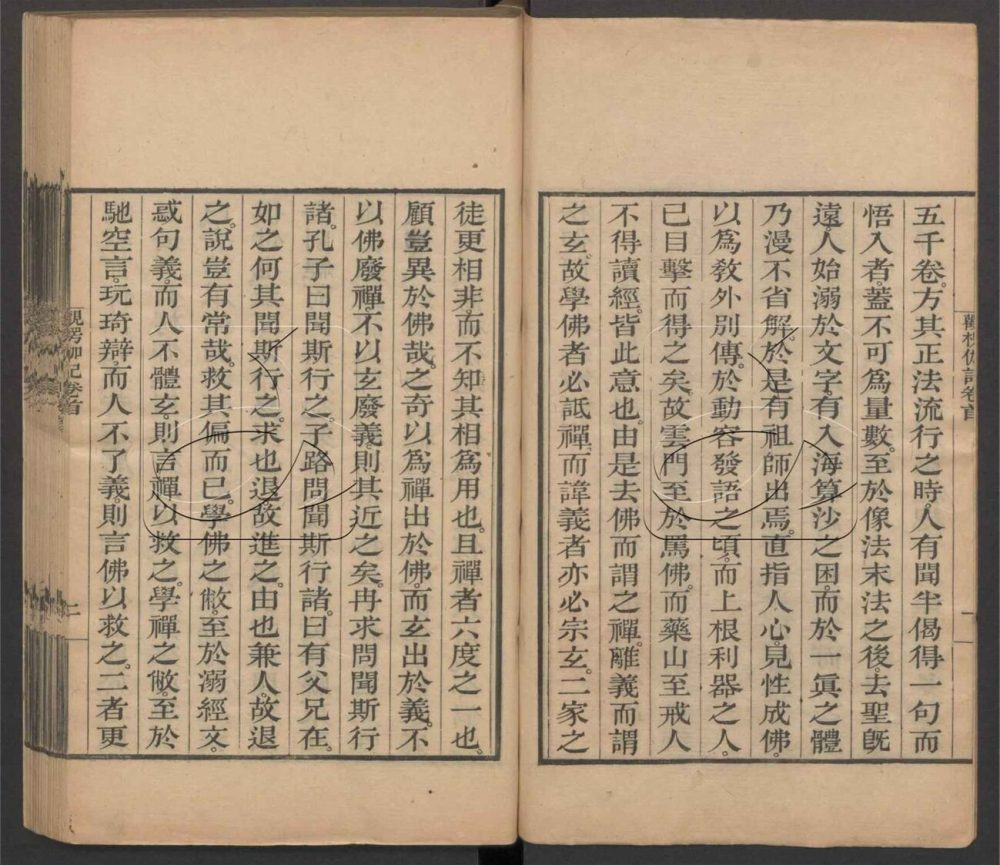 五千卷。方其正法流行之時。人有聞半偈得一句而
悟入者。蓋不可爲量數。至於像法末法之後。去聖旣
遠。人始溺於文字。有入海算沙之困。而於一眞之體
乃漫不省解。於是有祖師出焉。直指人心。見性成佛。
以爲敎外別傳。於動容發語之頃。而上根利器之人。
已目擊而得之矣。故雲門至於罵佛。而藥山至戒人
不得讀經。皆此意也。由是去佛而謂之禪。離義而謂
之玄。故學佛者必詆禪。而諱義者亦必宗玄。二家之
徒更相非。而不知其相爲用也。且禪者六度之一也。
顧豈異於佛哉。之奇以爲禪出於佛。而玄出於義。不
以佛廢禪。不以玄廢義。則其近之矣。冉求問聞斯行
諸。孔子曰聞斯行之。子路問聞斯行諸。曰有父兄在。
如之何其聞斯行之。求也退故進之。由也兼人。故退
之。說豈有常哉。救其偏而已。學佛之敝。至於溺經文。
惑句義。而人不體玄。則言禪以救之。學禪之敝。至於
馳空言。玩琦辯。而人不了義。則言佛以救之。二者更
卷首
二